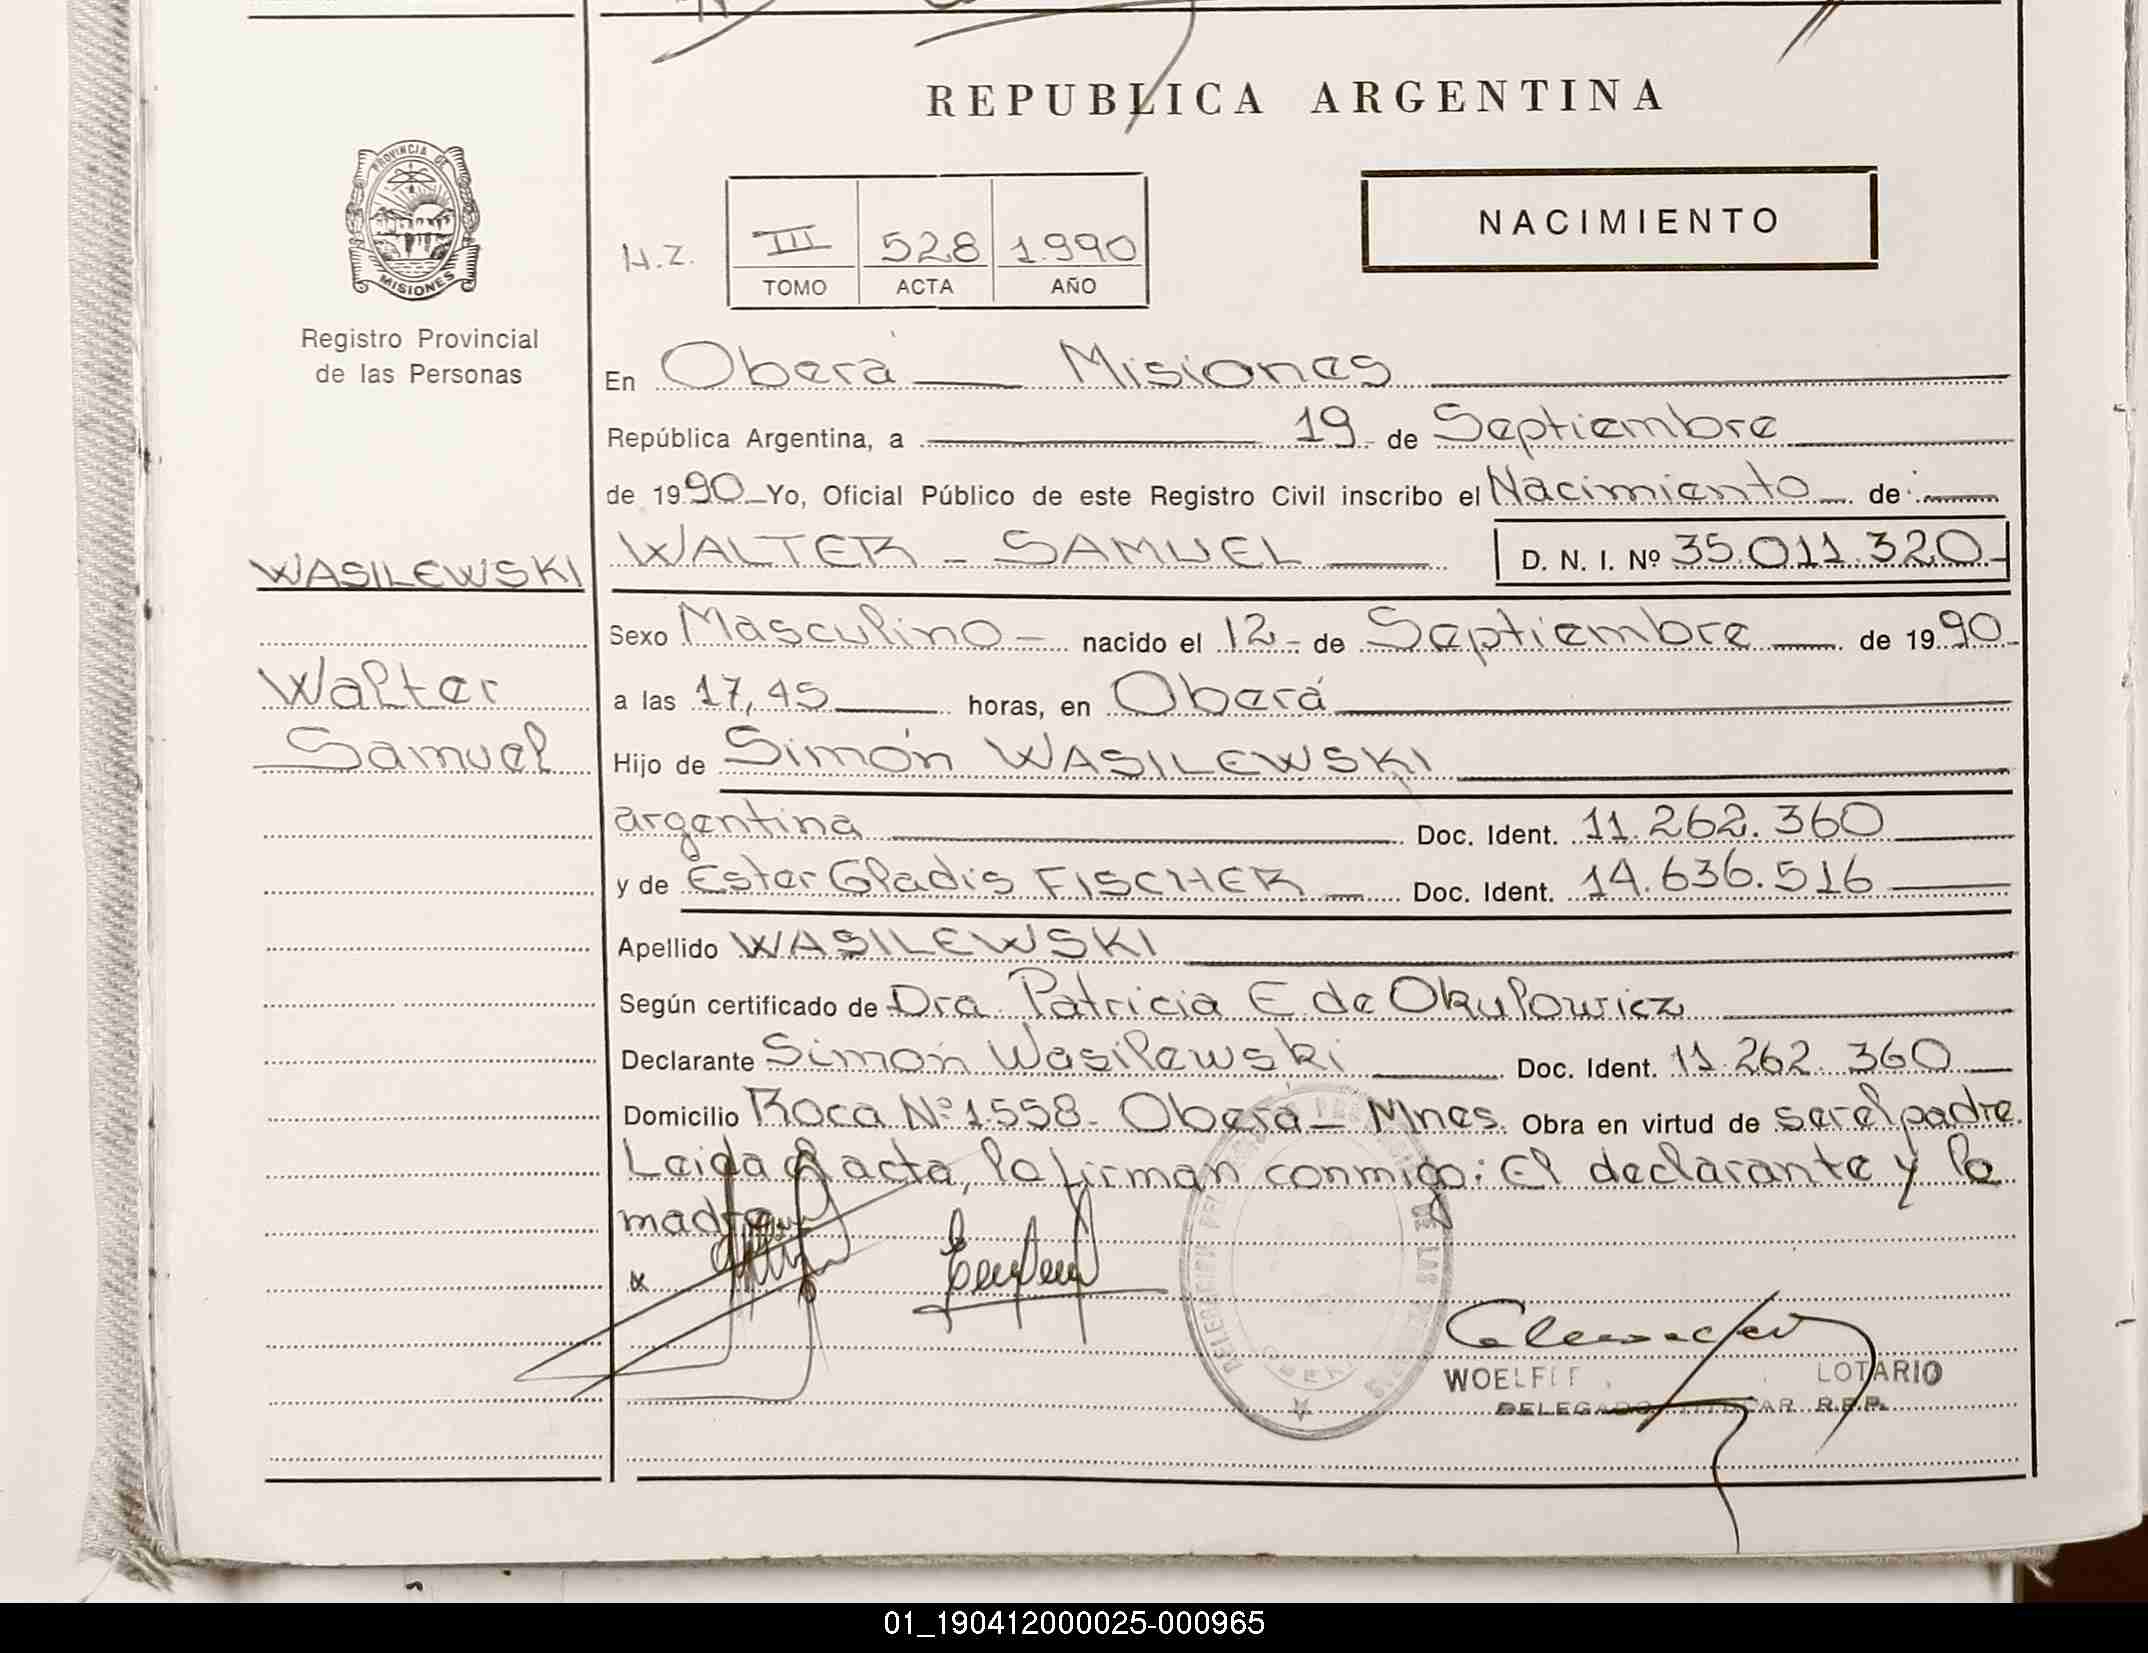 REPUBLICA ARGENTINA
PROVINCIA DE
MISIONES
Registro Provincial
de las Personas
H.Z.
III 528 1.990
TOMO ACTA AÑO
NACIMIENTO
En Oberá Misiones
República Argentina, a 19 de Septiembre
de 1990 Yo, Oficial Público de este Registro Civil inscribo el Nacimiento de:
WASILEWSKI
Walter
Samuel
WALTER - SAMUEL D. N. I. Nº 35.011.320-
Sexo Masculino - nacido el 12 - de Septiembre de 1990-
a las 17,45 horas, en Oberá
Hijo de Simón WASILEWSKI
argentina Doc. Ident. 11.262.360
y de Ester Gladis FISCHER Doc. Ident. 14.636.516
Apellido WASILEWSKI
Según certificado de Dra. Patricia E. de Okulowicz
Declarante Simón Wasilewski Doc. Ident. 11.262.360
Domicilio Roca Nº 1.558- Oberá - Mnes. Obra en virtud de ser el padre.
Leida el acta, la firman conmigo: El declarante y la
madre
x
LOTARIO
DELEGADO TITULAR R.P.P.
01_190412000025-000965